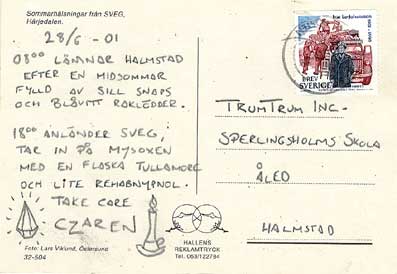 Sommarhälsningar från SVEG,
Härjedalen.
28/6 - 01
0800 LÄMNAR HALMSTAD
EFTER EN MIDSOMMAR
FYLLD AV SILL SNAPS
OCH BLÅVITT
1800 ANLÄNDER SVEG,
TAR IN PÅ MYSOXEN
MED EN FLASKA TULLAMORE
OCH LITE
TAKE CARE
CZAREN
Foto: Lars Viklund, Östersund
32-504
HALLENS
REKLAMTRYCK
Tel. 063/122784
BREV
SVERIGE
TRUMTRUM INC.
SPERLINGSHOLMS SKOLA
ÅLED
HALMSTAD